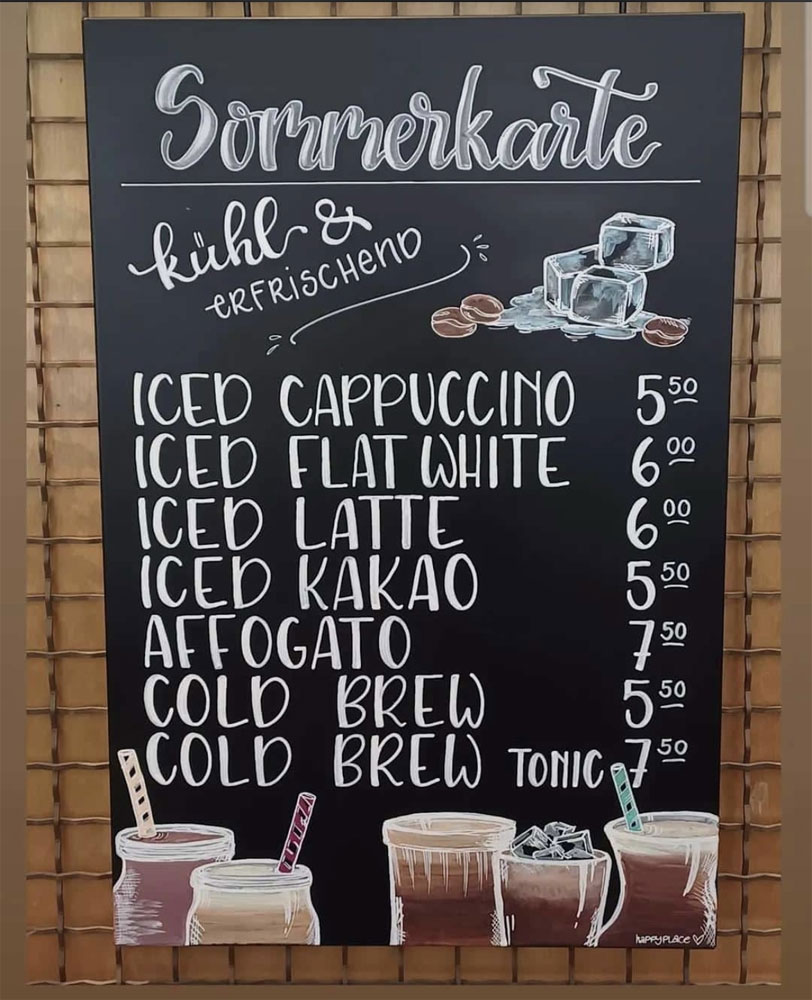 Sommerkarte
kühl &
ERFRISCHEND
ICED CAPPUCCINO 5 50
ICED FLAT WHITE 6 00
ICED LATTE 6 00
ICED KAKAO 5 50
AFFOGATO 7 50
COLD BREW 5 50
COLD BREW TONIC 7 50
happyplace ♡